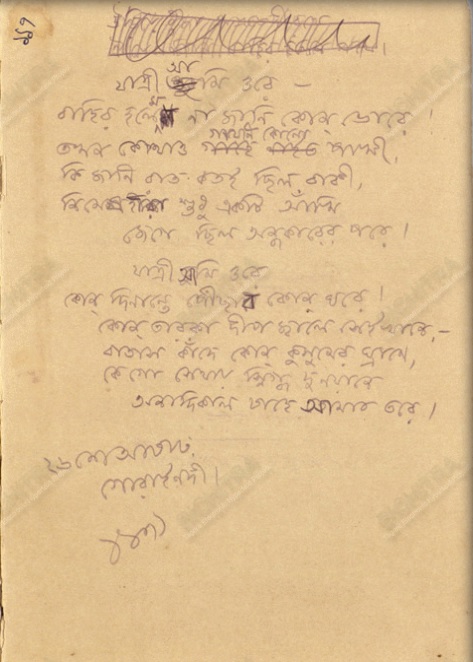 যাত্রী আমি ওরে —
বাহির হলেম না জানি কোন্ ভোরে !
তখন কোথাও গায়নি কোনো পাখী,
কি জানি রাত কতই ছিল বাকী,
নিমেষহারা শুধু একটি আঁখি
জেগে ছিল অন্ধকারের পরে !
যাত্রী আমি ওরে
কোন্ দিনান্তে পৌঁছাব কোন্ ঘরে !
কোন্ তারকা দীপ জ্বালে সেইখানে, —
বাতাস কাঁদে কোন্ কুসুমের ঘ্রাণে,
কে গো সেথায় স্নিগ্ধ দুনয়ানে
অনাদিকাল চাহে আমার তরে !
২৬শে আষাঢ়
গোরাইনদী।
BICHITRA